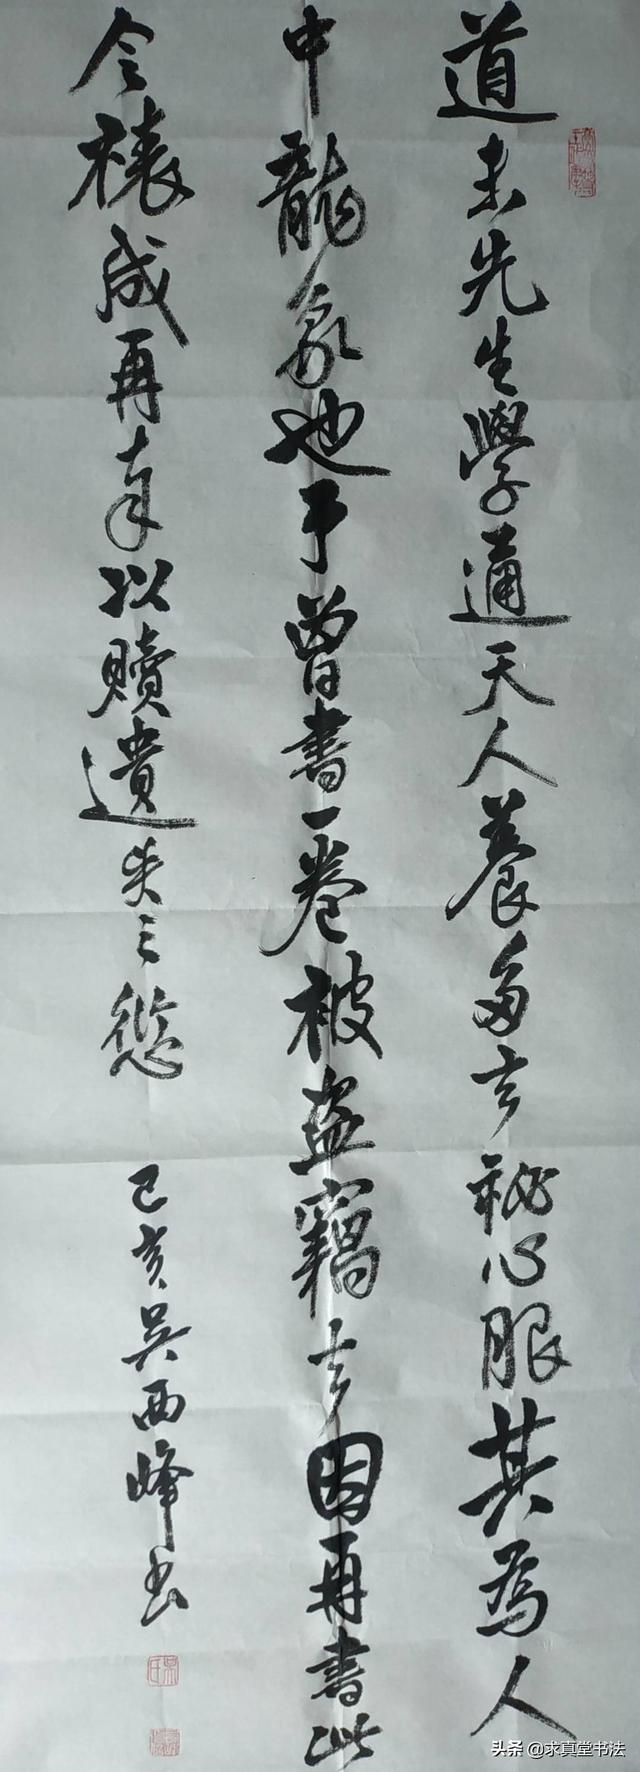 道未先生學通天人養多玄祕心服其為人
中龍象也予曾書一卷被盗竊去因再書此
令裱成再奉以贖遺失之愆 己亥吳西峰书
头条 @求真堂书法